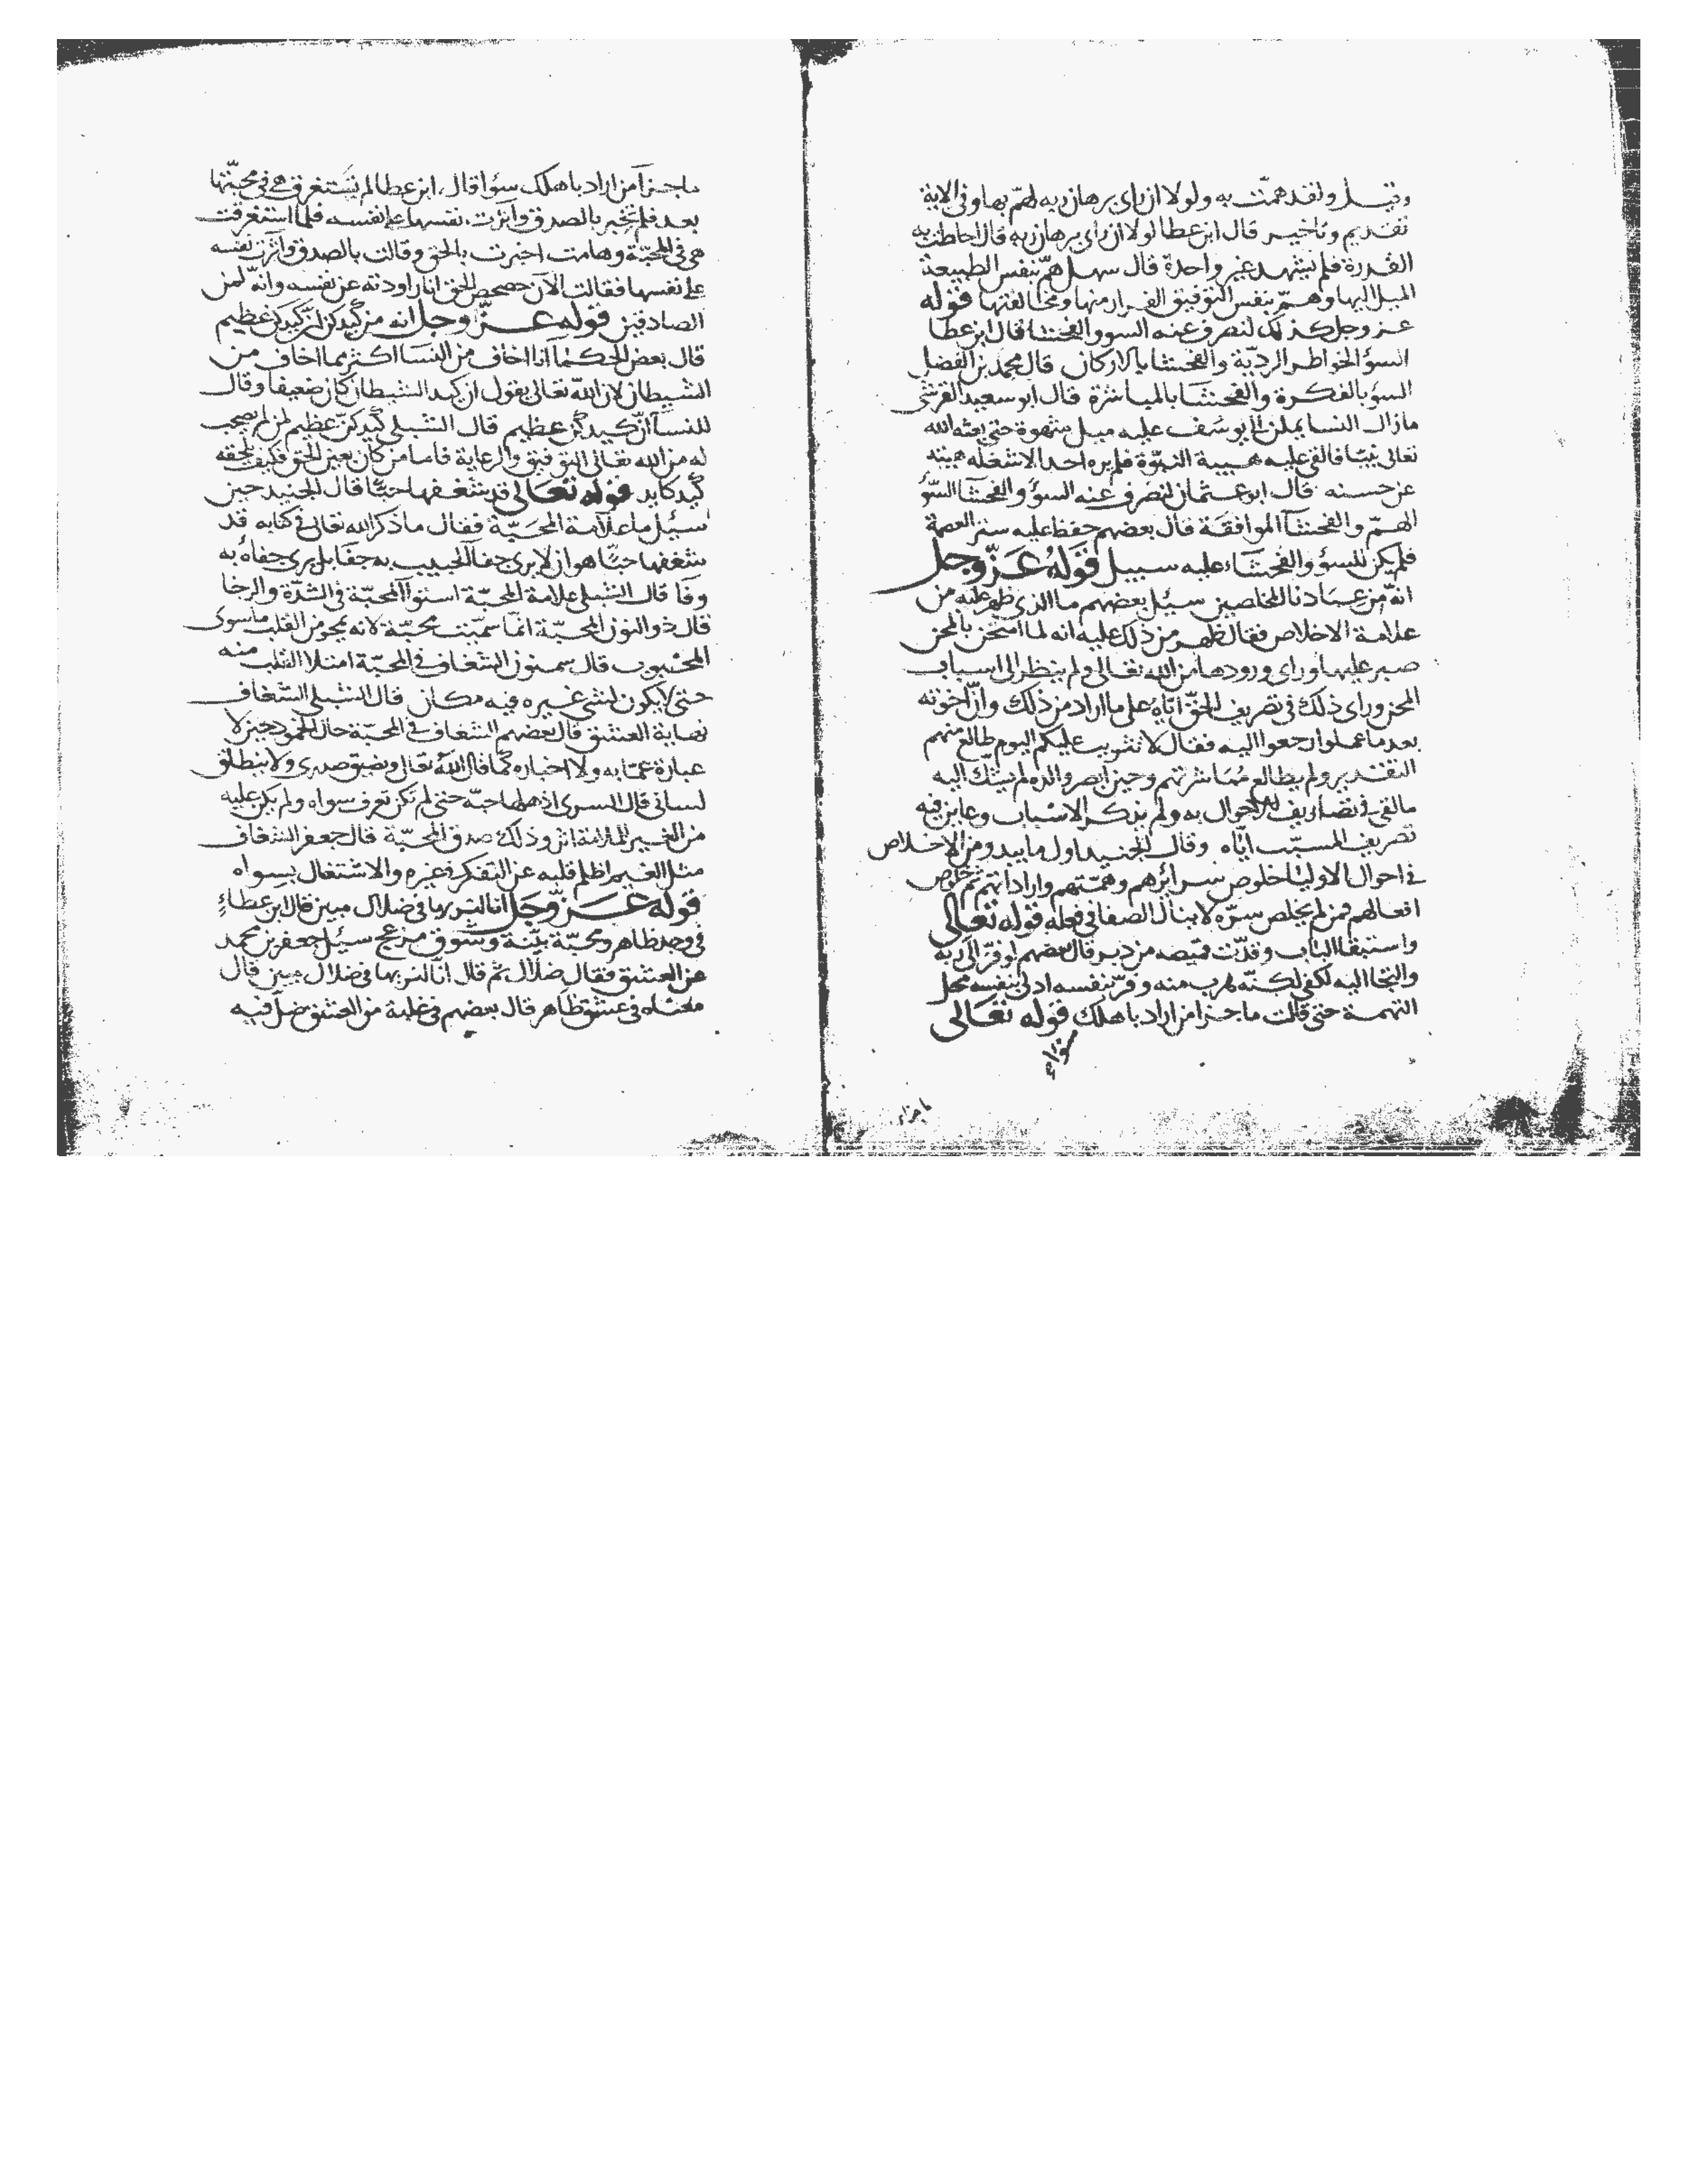 وقيل ولقد همّت به ولولا ان راى برهان ربه لهمّ بها وفى الاية
تقديم وتاخير قال ابن عطا لولا ان راى برهان ربه قال احاطت به
القدرة فلم يشهد غير واحدة قال سهل همّ بنفس الطبيعة
الميل اليها وهمّ بنفس التوفيق الفرار منها ومخالفتها قوله
عز وجل كذلك لنصرف عنه السوو الفحشا قال ابن عطا
السوؤ الخواطر الرديّة والفحشا بالاركان قال محمد بن الفضل
السوؤ بالفكرة والفحشا بالمباشرة قال ابو سعيد القرشى
مازال النسا يملن الى يوسف عليه ميل شهوة حتى بعثه الله
تعالى نبيّا فالقى عليه هيبة النبوّة فلم يره احد الا شغله هيبته
عن حسنه قال ابو عثمان لنصرف عنه السوؤ والفحشا السّؤ
الهمّ والفحشآ الموافقة قال بعضهم حفظ عليه ستر العصمة
فلم يكن للسوؤ والفحشاء عليه سبيل قوله عزّ وجل
انّه من عبادنا المخلصين سئل بعضهم ما الذى ظهر عليه من
علامة الاخلاص فقال ظهر من ذلك عليه انه لما امتحن بالمحن
صبر عليها وراى ورودها من الله تعالى ولم ينظر الى اسباب
المحن وراى ذلك فى تصريف الحقّ ايّاه على ما اراد من ذلك وانّ اخوته
بعد ما عملوا رجعوا اليه فقال لا تثريب عليكم اليوم طالع منهم
التقدير ولم يطالع مباشرتهم وحين ابصر والده لم يشك اليه
ما لقى فى تصاريف الاحوال به ولم يذكر الاسباب وعاين فيه
تصريف المسبّب ايّاه وقال الجنيد اول ما يبدو من الاخلاص
فى احوال الاوليا خلوص سرائرهم وهمّتهم واراداتهم ثم خلوص
افعالهم فمن لم يخلص سرّه لا ينال الصفا فى فعله قوله تعالى
واستبقا الباب وقدّت قميصه من دبر قال بعضهم لو فرّ الى ربه
والتجا اليه لكفى لكنّه هرب منه وفرّ بنفسه ادلى بنفسه محل
التهمة حتى قالت ما جزا من اراد باهلك قوله تعالى
سوءا
ما جزاء
ما جزآ من اراد باهلك سوؤا قال ابن عطا لم تستغرق هى فى محبّتها
بعد فلم تخبر بالصدق وآثرت نفسها على نفسه فلما استغرقت
هى فى المحبّة وهامت اخبرت بالحق وقالت بالصدق وآثرت نفسه
على نفسها فقالت الآن حصحص الحق انا راودته عن نفسه وانّه لمن
الصادقين قوله عزّ وجل انه من كيدكن ان كيدكن عظيم
قال بعض الحكما انا اخاف من النسا اكثر مما اخاف من
الشيطان لان الله تعالى يقول ان كيد الشيطان كان ضعيفا وقال
للنسآ انّ كيدكن عظيم قال الشبلى كيدكنّ عظيم لمن لم يصحب
له من الله تعالى التوفيق والرعاية فاما من كان بعين الحق فكيف يلحقه
كيد كايد قوله تعالى قد شغفها حبّا قال الجنيد حين
سئل ما علامة المحبّة فقال ما ذكر الله تعالى فى كتابه قد
شغفها حبّا هو ان لا يرى جفا الحبيب به جفا بل يرى جفاه به
وفا قال الشبلى علامة المحبّة استوآ المحبّة فى الشدّة والرخا
قال ذو النون المحبّة انمّا سمّيت محبّة لانه يمحو من القلب ما سوى
المحبوب قال سمنون الشغاف فى المحبّة امتلا القلب منه
حتى لا يكون لشى غيره فيه مكان قال الشبلى الشغاف
نهاية العشق قال بعضهم الشغاف فى المحبّة حال الخمود حين لا
عبارة عمّا به ولا اخباره كما قال الله تعالى ويضيق صدرى ولا ينطلق
لسانى قال السرى اذهلها حبّه حتى لم تكن تعرف سواه ولم يكن عليه
من الغيير الملامة اثر وذلك صدق المحبّة قال جعفر الشغاف
مثل الغيم اظلم قلبه عن التفكر فى غيره والاشتغال بسواه
قوله عزّ وجل انا لنريها فى ضلال مبين قال ابن عطاء
فى وجد ظاهر ومحبّة بيّنة وشوق مزعج سئل جعفر بن محمد
عن العشق فقال ضلال ثم قال انّا لنريها فى ضلال مبين قال
معناه فى عشق ظاهر قال بعضهم فى غلبة من العشق ضلّ فيه